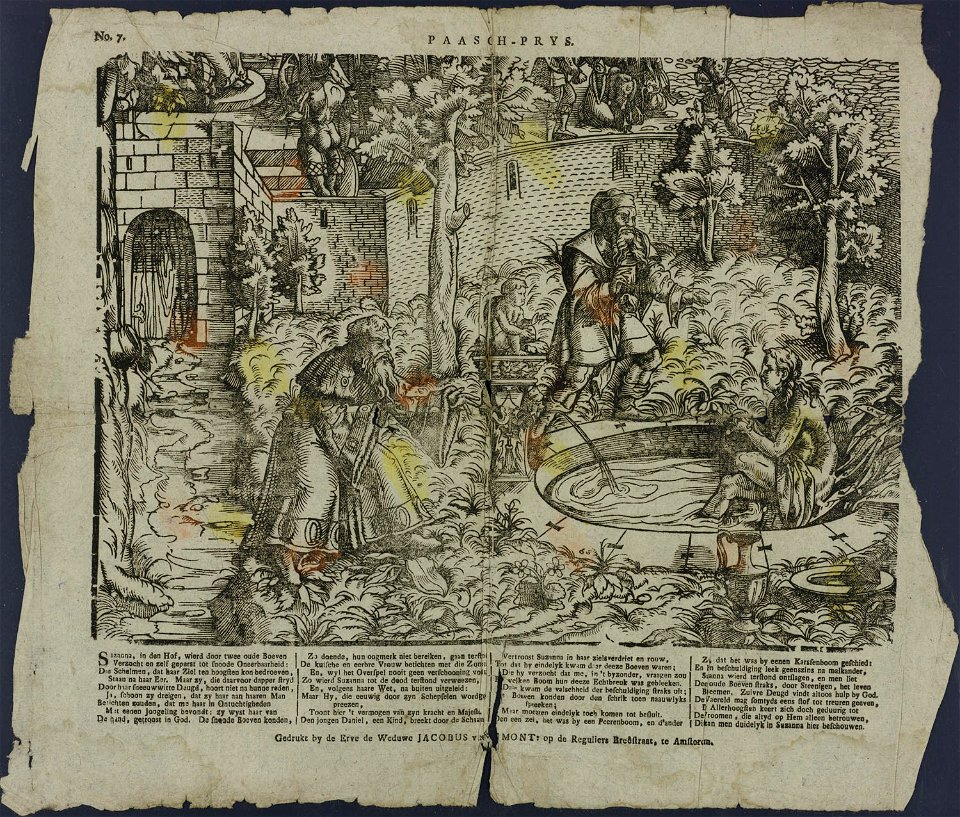 No. 7.
PAASCH-PRYS.
Suzanna, in den Hof, wierd door twee oude Boeven
Verzocht en zelf geparst tot snoode Oneerbaarheid:
Die Schelmen, dat haar Ziel ten hoogsten kon bedroeven,
Staan na haar Eer. Maar zy, die daarvoor dapper stryd
Door haar sneeuwwitte Deugd, hoort niet na hunne reden,
Ja, schoon zy dreigen, dat zy haar aan haaren Man
Berichten zouden, dat ze haar in Ontuchtigheden
Met eenen jongeling bevondt: zy wyst haar van
De hand, getroost in God. De snoode Boeven konden,
Zo doende, hun oogmerk niet bereiken, gaan terstond
De kuische en eerbre Vrouw betichten met die Zonde
En, wyl het Overspel toen geen verschooning vondt
Zo wierd Suzanna die de dood terstond verweezen,
En, volgens haare Wet, na buiten uitgeleid:
Maar Hy, die eeuwig door zyn Schepselen wordge
preezen,
Toont hier 't vermogen van zyn kracht en Majest.
Den jongen Daniel, een Kind, breekt door de Schaar
Vertroost Suzanna in haar zielsverdriet en rouw,
Tot dat hy eindelyk kwam daar deeze Boeven waren;
Die hy verzocht dat me, in 't byzonder, vraagen zou
welken Boom hun deeze Echtbreuk was gebleeken.
Dus kwam de valscheid der beschuldiging straks uit;
Boeven konden door den schrik toen naauwlyks
spreeken;
Maar moeten eindelyk toch komen tot besluit.
Den een zei, het was by een Peerenboom, en d'ander
Zei dat het was by eenen Karssenboom geschied:
En in beschuldiging leek geenszins na malkander,
Suzanna wierd terstond ontslagen, en men liet
Die oude Boeven straks, door Steenigen, het leven
Beneemen. Zuivre Deugd vindt altoos hulp by God.
De Wereld mag somtyds eens stof tot treuren geeven,
D' Allerhoogsten keer zich doch geduurig tot
De vroomen, die altyd op Hem alleen betrouwen,
Dit kan men duidelyk in Suzanna hier beschouwen.
Gedrukt by de Erve de Weduwe JACOBUS van EGMONT: op de Reguliers Breêstraat, te Amsterdam.